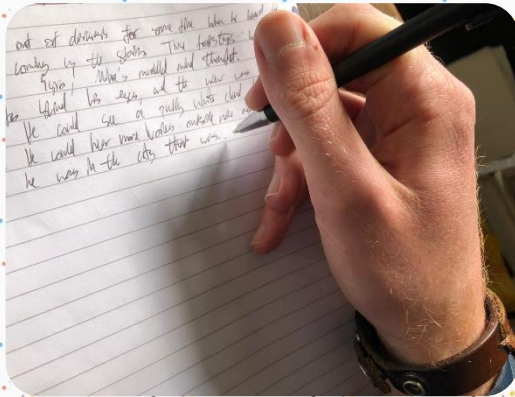 out of dreams for some time when he heard the
coming up the stairs. The footsteps
Eyes, Who's muddled mind thought.
his eyes, and the view was
He could see a puffy white cloud
He could hear more voices outside now
he was in the city that was